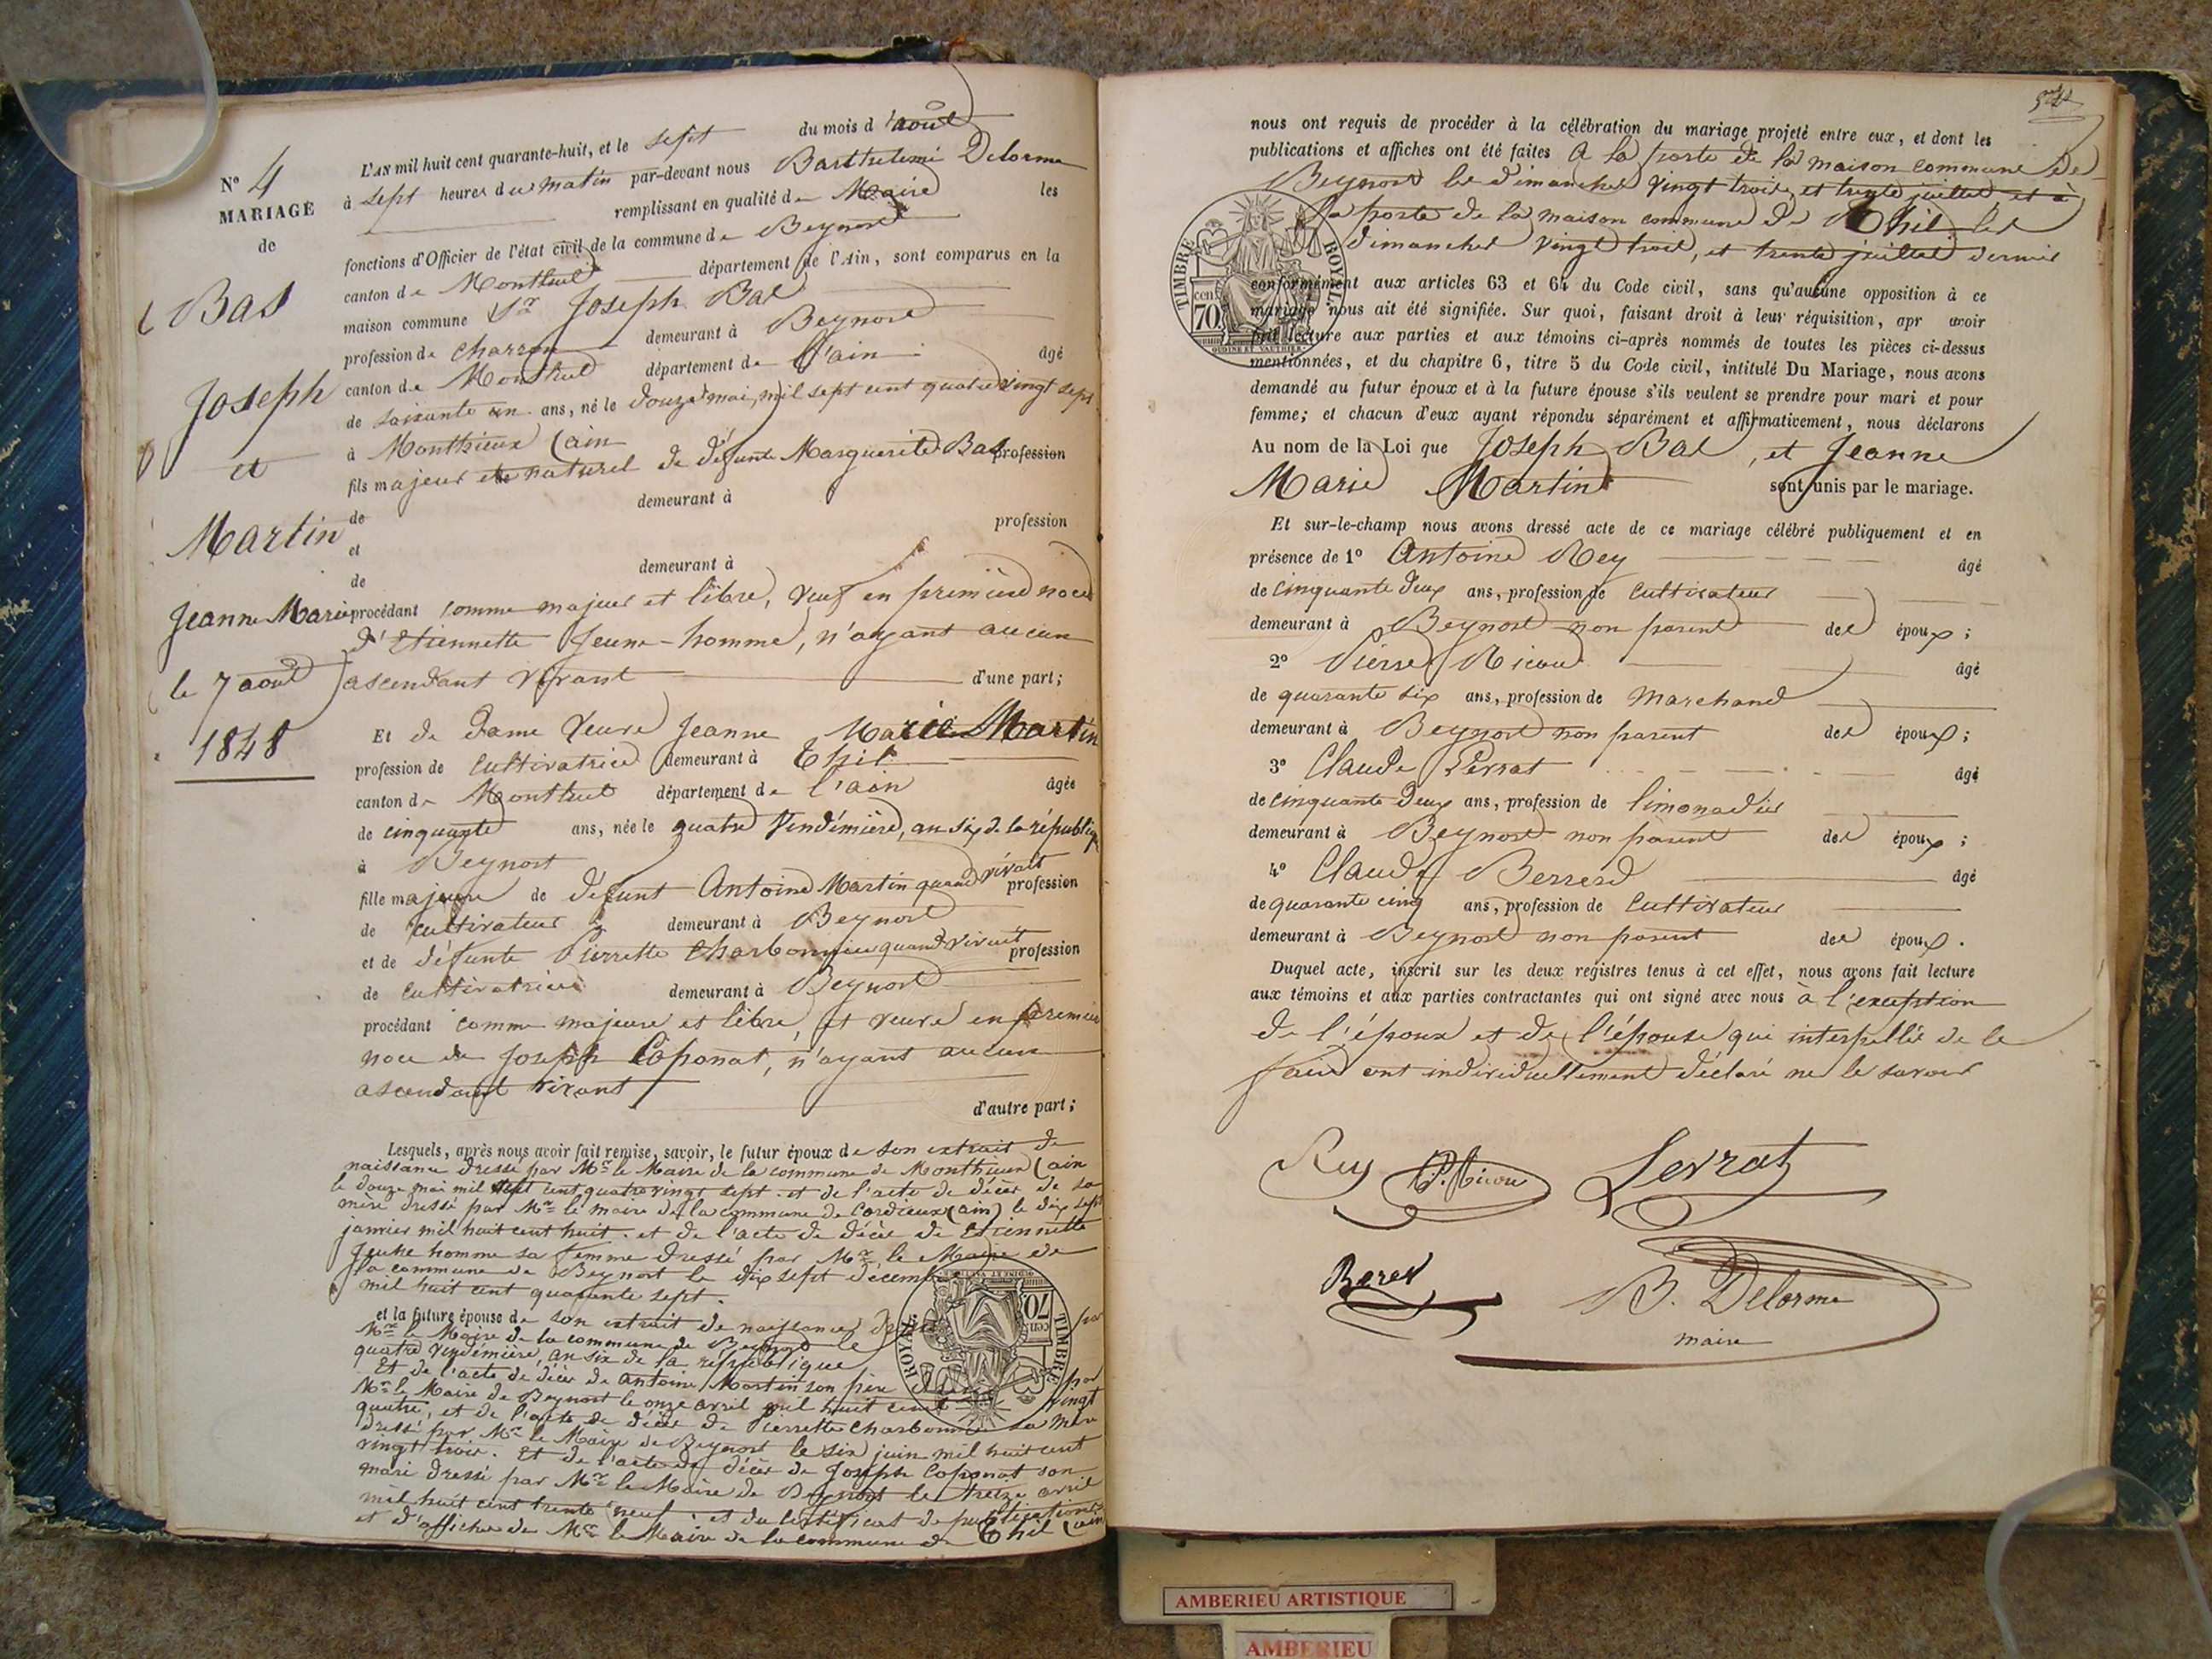 N° 4
MARIAGE
de
Bas
Joseph
et
Martin
Jeanne Marie
le 7 août
1848
L'AN mil huit cent quarante-huit, et le sept du mois d'août
à sept heures du matin par-devant nous Barthelemi Delorme
remplissant en qualité de Maire les
fonctions d'Officier de l'état civil de la commune de Beynost
canton de Montluel département de l'Ain, sont comparus en la
maison commune Sr Joseph Bas
profession de charron demeurant à Beynost
canton de Montluel département de l'ain âgé
de soixante un ans, né le douze mai, mil sept cent quatre vingt sept
à Monthieux (ain
fils majeur et naturel de défunte Marguerite Bas profession
de demeurant à
et profession
de demeurant à
procédant comme majeur et libre, veuf en première noce
d'Etiennette Jeune-homme, n'ayant aucun
ascendant vivant d'une part;
Et de Dame veuve Jeanne Marie Martin
profession de cultivatrice demeurant à Thil
canton de Montluel département de l'ain âgée
de cinquante ans, née le quatre Vendémière, an six de la républiq
à Beynost
fille majeure de défunt Antoine Martin quand vivait profession
de cultivateur demeurant à Beynost
et de défunte Pierrette Charbonnier quand vivait profession
de cultivatrice demeurant à Beynost
procédant comme majeure et libre, et veuve en première
noce de Joseph Coponat, n'ayant aucun
ascendant vivant
d'autre part;
Lesquels, après nous avoir fait remise, savoir, le futur époux de son extrait de
naissance dressé par Mr le Maire de la commune de Monthieux (ain
le douze mai mil sept cent quatre vingt sept. et de l'acte de décès de sa
mère dressé par Mr le maire de la commune de Cordieux (ain) le dix sept
janvier mil huit cent huit. et de l'acte de décès de Etiennette
Jeune homme sa femme dressé par Mr le Maire de
la commune de Beynost le dix sept décembre
mil huit cent quarante sept.
et la future épouse de son extrait de naissance par
Mr le Maire de la commune de Beynost le
quatre vendémière, an six de la république
Et de l'acte de décès de Antoine Martin son père par
Mr le Maire de Beynost le onze avril mil huit cent vingt
quatre, et de l'acte de décès de Pierrette Charbonnier sa mère
dressé par Mr le Maire de Beynost le six juin mil huit cent
vingt trois. Et de l'acte de décès de Joseph Coponat son
mari dressé par Mr le Maire de Beynost le treize avril
mil huit cent trente neuf. et du certificat de publications
et d'affiches de Mr le Maire de la commune de Thil (ain
TIMBRE ROYAL
70 cen
nous ont requis de procéder à la célébration du mariage projeté entre eux, et dont les
publications et affiches ont été faites à la porte de la maison commune de
Beynost les dimanches vingt trois, et trente juillet, et à
la porte de la maison commune de Thil les
dimanches vingt trois, et trente juillet dernier
TIMBRE ROYAL
cen 70
OUDINE ET VAUTHIER
conformément aux articles 63 et 64 du Code civil, sans qu'aucune opposition à ce
mariage nous ait été signifiée. Sur quoi, faisant droit à leur réquisition, apr avoir
fait lecture aux parties et aux témoins ci-après nommés de toutes les pièces ci-dessus
mentionnées, et du chapitre 6, titre 5 du Code civil, intitulé Du Mariage, nous avons
demandé au futur époux et à la future épouse s'ils veulent se prendre pour mari et pour
femme; et chacun d'eux ayant répondu séparément et affirmativement, nous déclarons
Au nom de la Loi que Joseph Bas, et Jeanne
Marie Martin sont unis par le mariage.
Et sur-le-champ nous avons dressé acte de ce mariage célébré publiquement et en
présence de 1° Antoine Rey âgé
de cinquante deux ans, profession de cultivateur
demeurant à Beynost non parent des époux;
2° Pierre Nicoud âgé
de quarante six ans, profession de marchand
demeurant à Beynost non parent des époux;
3° Claude Perrat âgé
de cinquante deux ans, profession de limonadier
demeurant à Beynost non parent des époux;
4° Claude Berrerd âgé
de quarante cinq ans, profession de cultivateur
demeurant à Beynost non parent des époux.
Duquel acte, inscrit sur les deux registres tenus à cet effet, nous avons fait lecture
aux témoins et aux parties contractantes qui ont signé avec nous à l'exception
de l'époux et de l'épouse qui interpellés de le
faire ont individuellement déclaré ne le savoir
Rey Perrat
B. Delorme
maire
AMBERIEU ARTISTIQUE
AMBERIEU